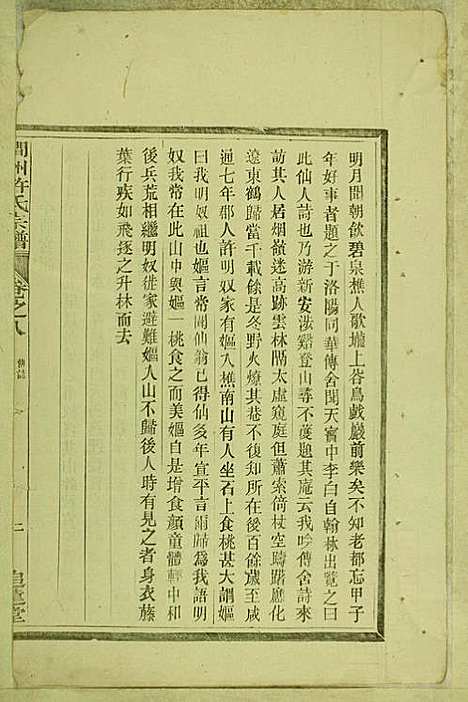 明月間朝飲碧泉樵人歌壠上谷鳥戲巖前樂矣不知老都忘甲子
年好事者題之于洛陽同華傳舍間天寶中李白自翰林出覽之曰
此仙人詩也乃游新安涉谿登山尋不蔓題其庵云我吟傳舍詩來
訪真人居烟嶺迷高跡雲林隔太虛窺庭但蕭索倚杖空躊躇應化
遼東鶴歸當千載餘是冬野火燎其巷不復知所在後百餘歲至咸
通七年郡人許明奴家有嫗入樵南山有人坐石上食桃甚大謂嫗
曰我明奴祖也嫗言常聞仙翁已得仙多年宣平言爾歸為我語明
奴我常在此山中與嫗一桃食之而美嫗自是增食顏童體輕中和
後兵荒相繼明奴徙家避難嫗人山不歸後人時有見之者身衣蘿
葉行疾如飛逐之升林而去
州許氏宗譜
卷之八